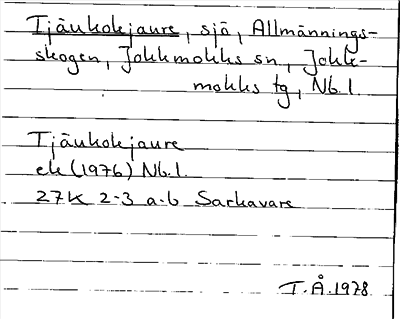 Tjäukokjaure, sjö, Allmännings-
skogen, Jokkmokks sn, Jokk-
mokks tg, Nb.l.
Tjäukokjaure
ek (1976) Nb.l.
27K 2-3 a-b Sarkavare
T.Å. 1978